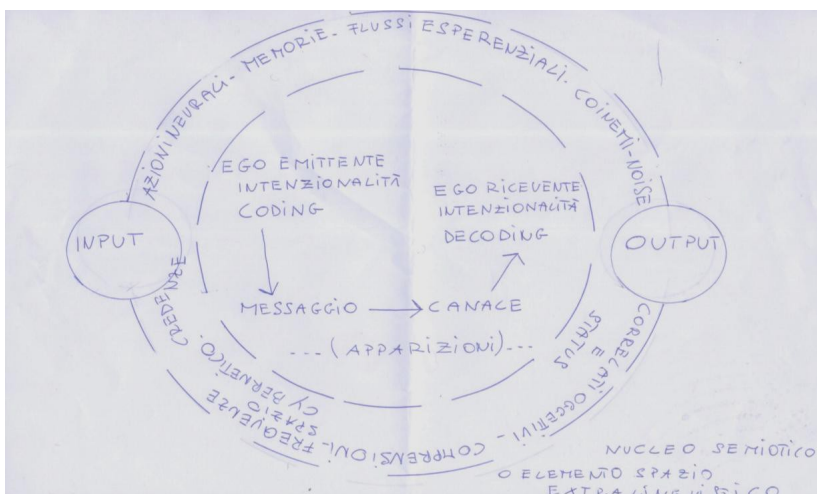 AZIONI NEURALI - MEMORIE - FLUSSI ESPERENZIALI. COINEMI-NOISE
EGO EMITTENTE
INTENZIONALITÀ
CODING
EGO RICEVENTE
INTENZIONALITÀ
DECODING
INPUT
OUTPUT
MESSAGGIO
CANALE
... (APPARIZIONI)...
CORRELATI OGGETIVI - COMPRENSIONI - FREQUENZE
E
STATUS
SPAZIO
CYBERNETICO. CREDENZE
NUCLEO SEMIOTICO
O ELEMENTO SPAZIO
EXTRALINGUISTICO